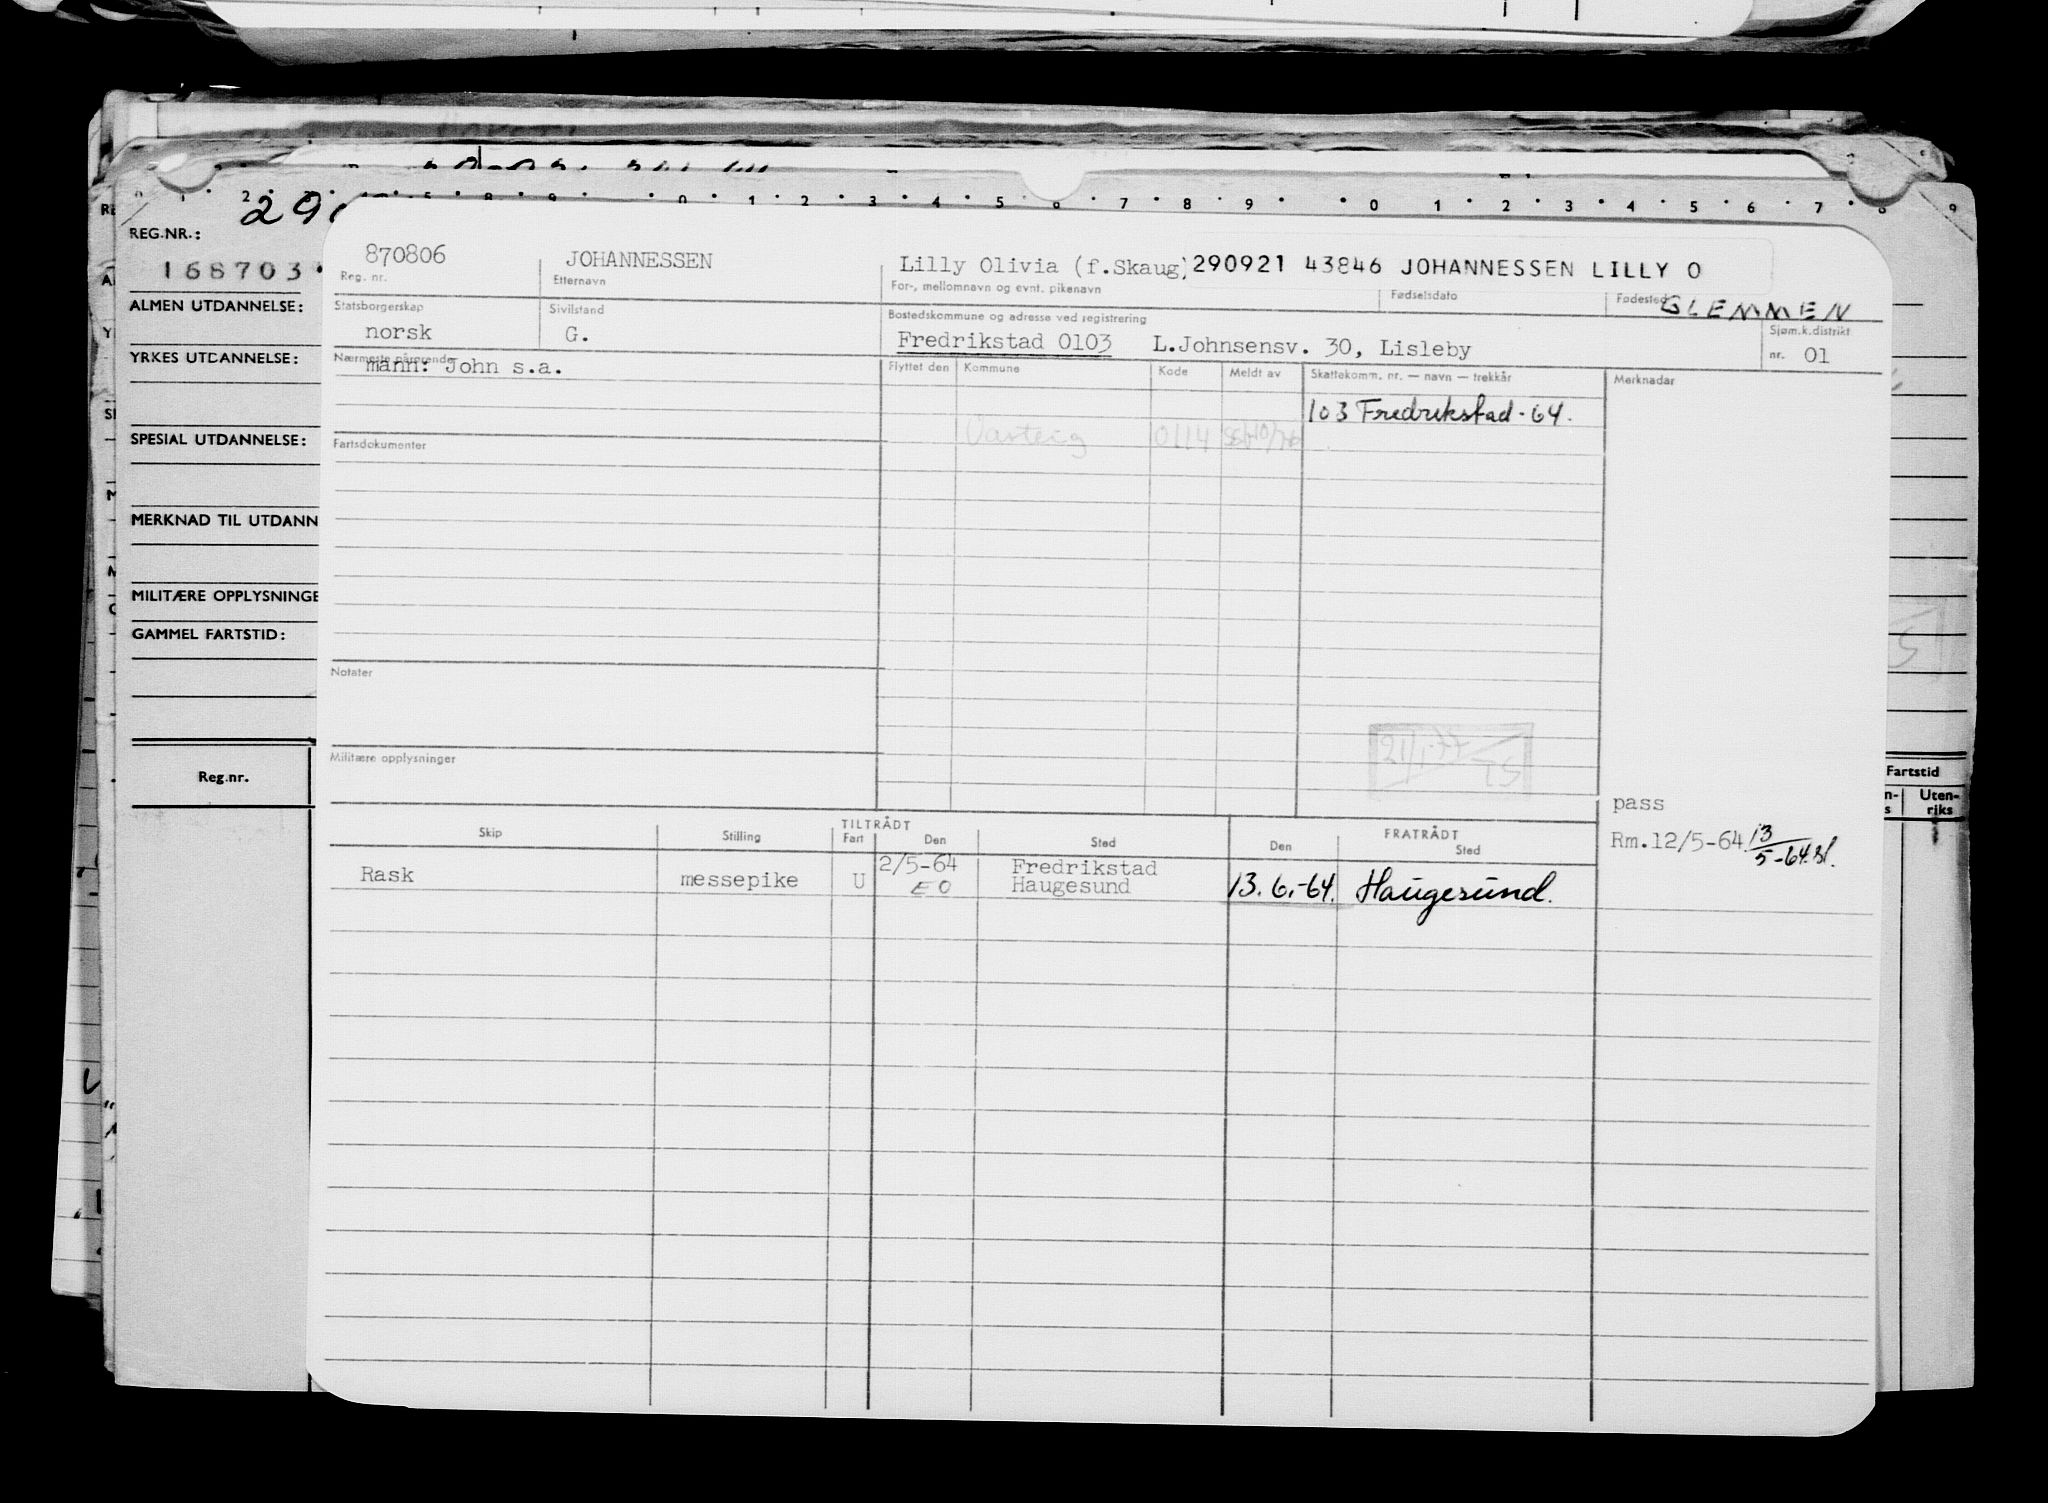 290
REG.NR.:
168703
ALMEN UTDANNELSE:
YRKES UTDANNELSE:
SPESIAL UTDANNELSE:
MERKNAD TIL UTDANN
MILITÆRE OPPLYSNINGE
GAMMEL FARTSTID:
Reg.nr.
870806 JOHANNESSEN Lilly Olivia (f.Skaug) 290921 43846 JOHANNESSEN LILLY O
Reg. nr. Etternavn For-, mellomnavn og evnt. pikenavn Fødselsdato Fødested GLEMMEN
Statsborgerskap Sivilstand Bostedskommune og adresse ved registrering Sjøm.k.distrikt
norsk G. Fredrikstad 0103 L.Johnsensv. 30, Lisleby nr. 01
Nærmeste pårørende Flyttet den Kommune Kode Meldt av Skattekomm. nr. — navn — trekkår Merknadar
mann: John s.a.
103 Fredrikstad - 64.
Fartsdokumenter Varteig 0114
Notater
21/1-77 TS
Militære opplysninger
pass
Skip Stilling TILTRÅDT Fart Den Sted FRATRÅDT Den Sted
Rm.12/5-64 13/5-64
2/5-64 Fredrikstad
Rask messepike U EO Haugesund 13.6.-64. Haugesund.
Fartstid
Uten-
riks